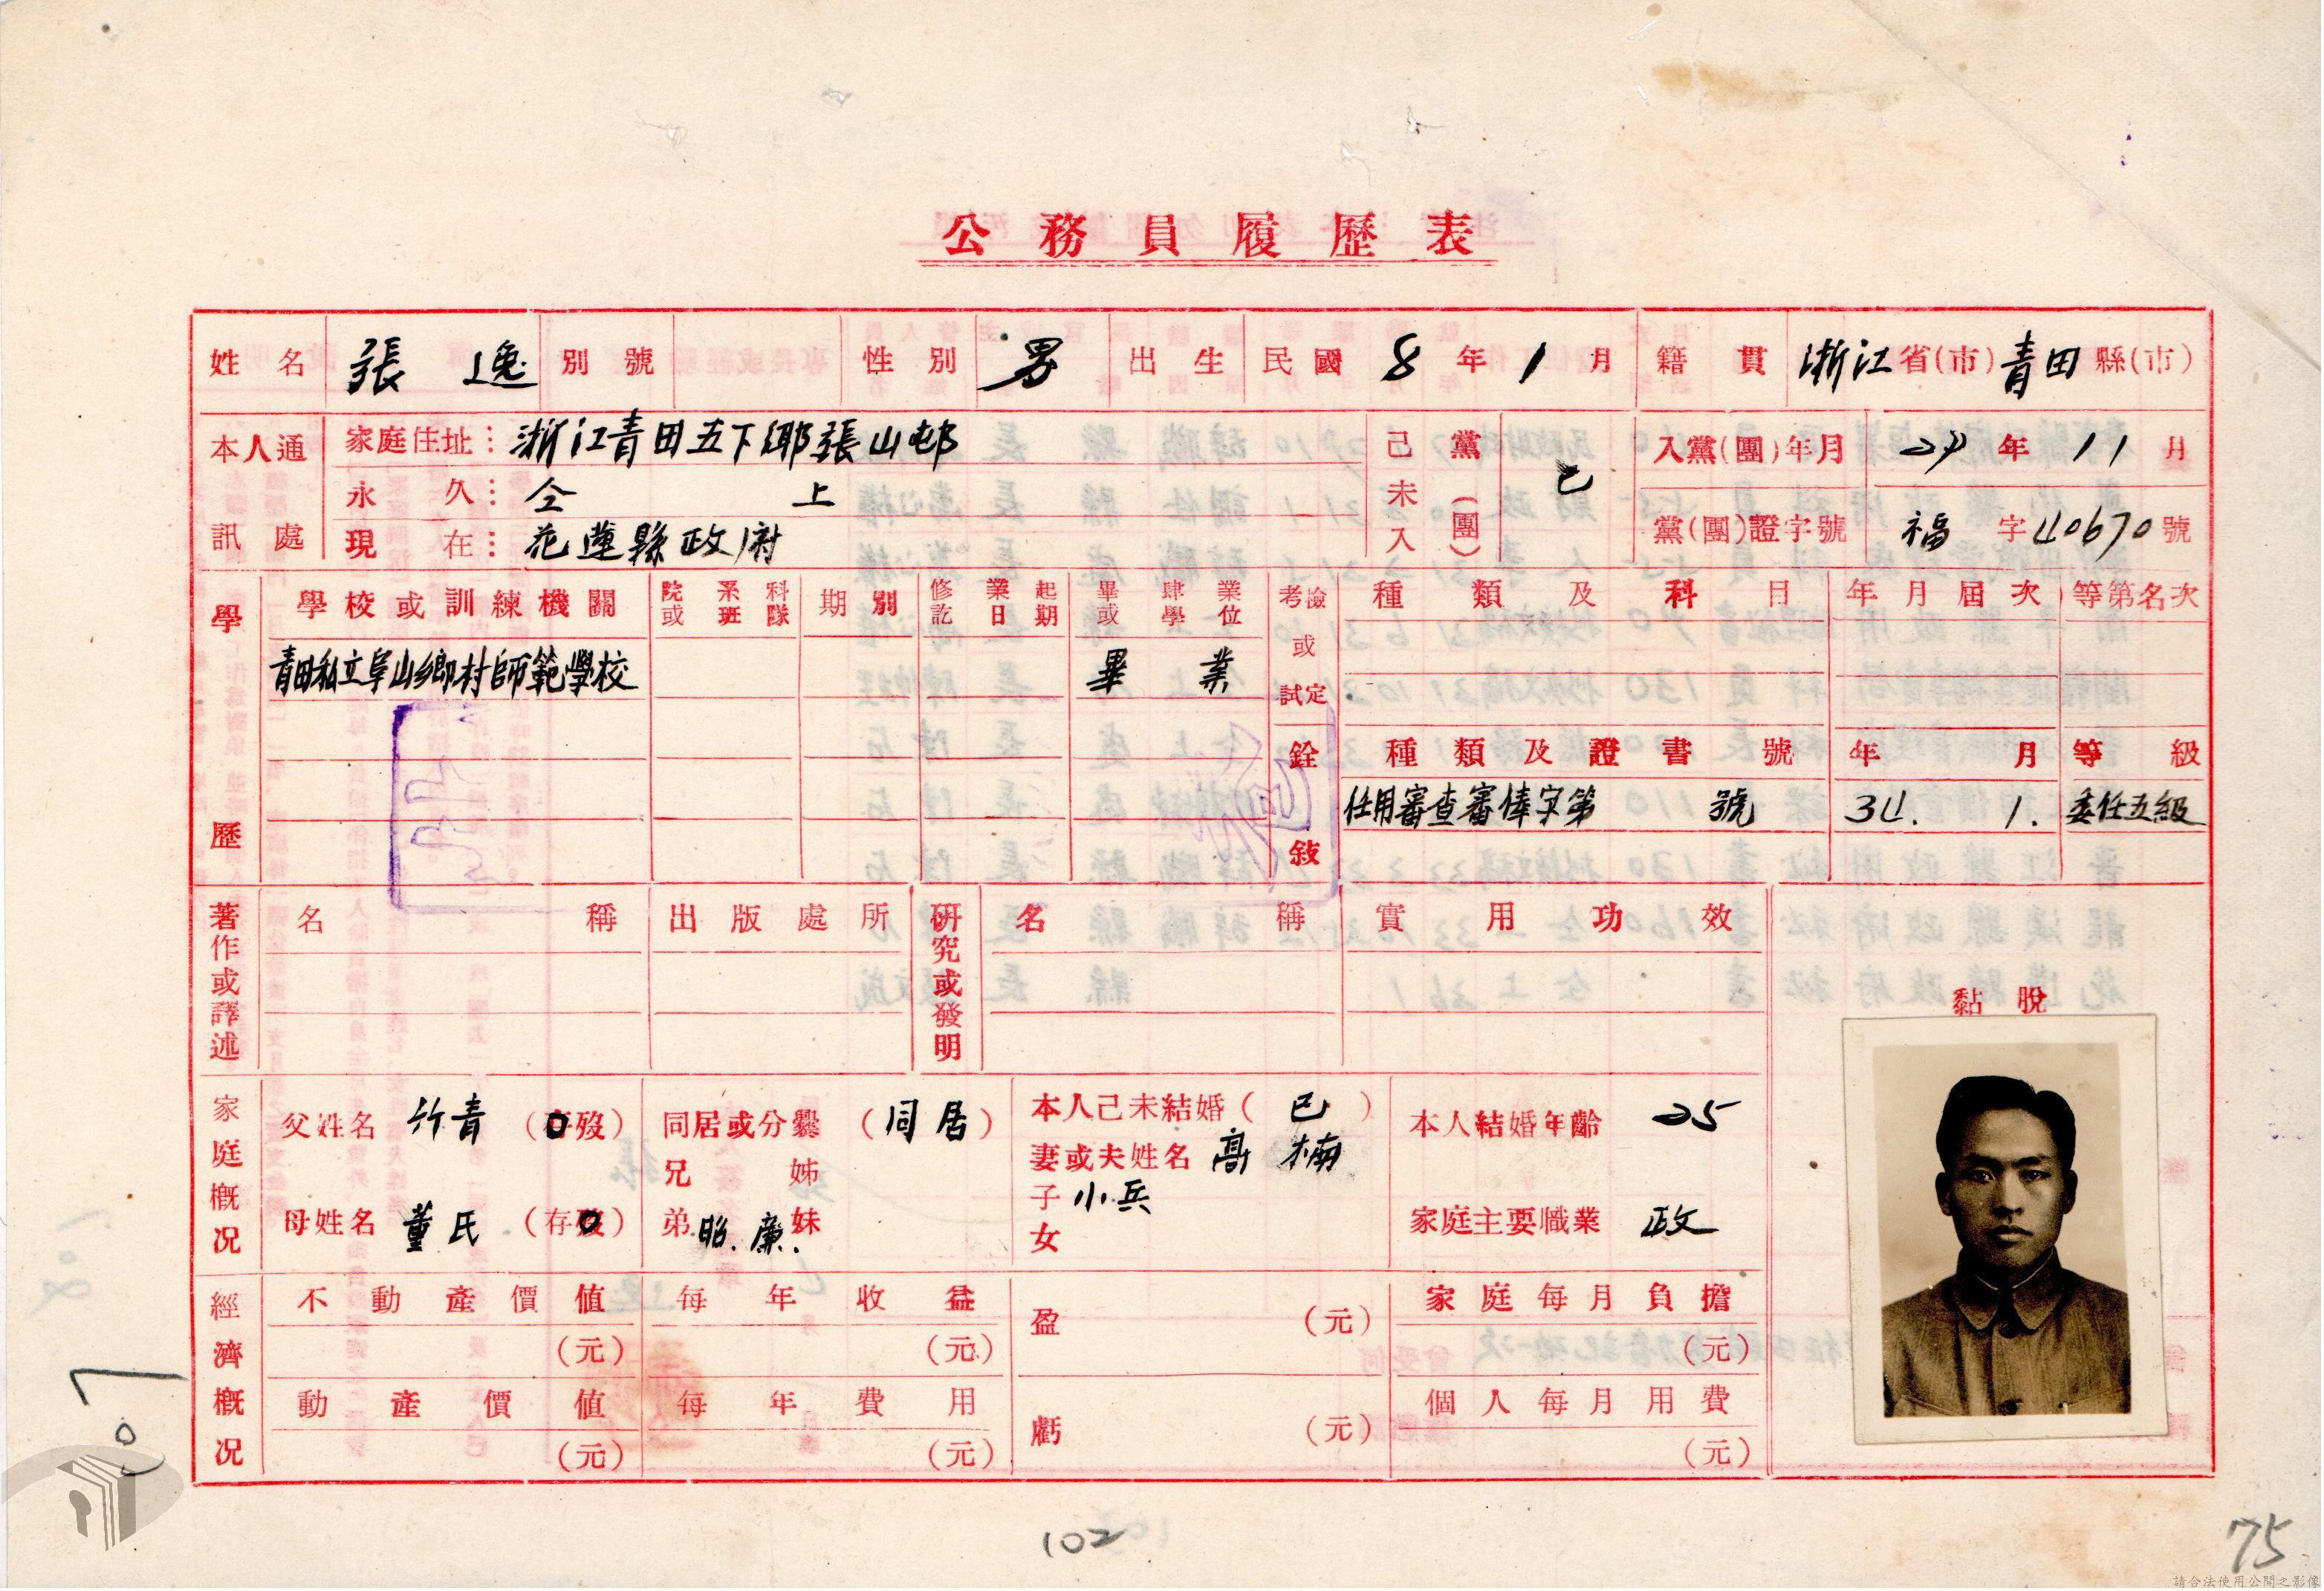 公務員履歷表
姓名 張逸 別號 性別 男 出生 民國8年1月 籍貫 浙江省(市)青田縣(市)
本人通訊處
家庭住址：浙江青田五下鄉張山邨
永久：仝上
現在：花蓮縣政府
已未入黨(團) 已
入黨(團)年月 27年11月
黨(團)證字號 福字40670號
學歷
學校或訓練機關 院系科或班隊 期別 修業起訖日期 畢肄業或學位
青田私立阜山鄉村師範學校 畢業
考試或檢定 種類及科目 年月屆次 等第名次
銓敍 種類及證書號 年月 等級
任用審查審俸字第 號 34. 1. 委任五級
著作或譯述 名稱 出版處所
研究或發明 名稱 實用功效
黏脫
家庭概况
父姓名 竹青 (存歿)
母姓名 董氏 (存歿)
同居或分爨 (同居)
兄弟姊妹 昭.廉.
本人已未結婚(已)
妻或夫姓名 高楠
子 小兵
女
本人結婚年齡 25
家庭主要職業 政
經濟概况
不動產價值 每年收益 盈 (元) 家庭每月負擔
(元) (元) (元)
動產價值 每年費用 虧 (元) 個人每月用費
(元) (元) (元)
107
102
75
請合法使用公開之影像